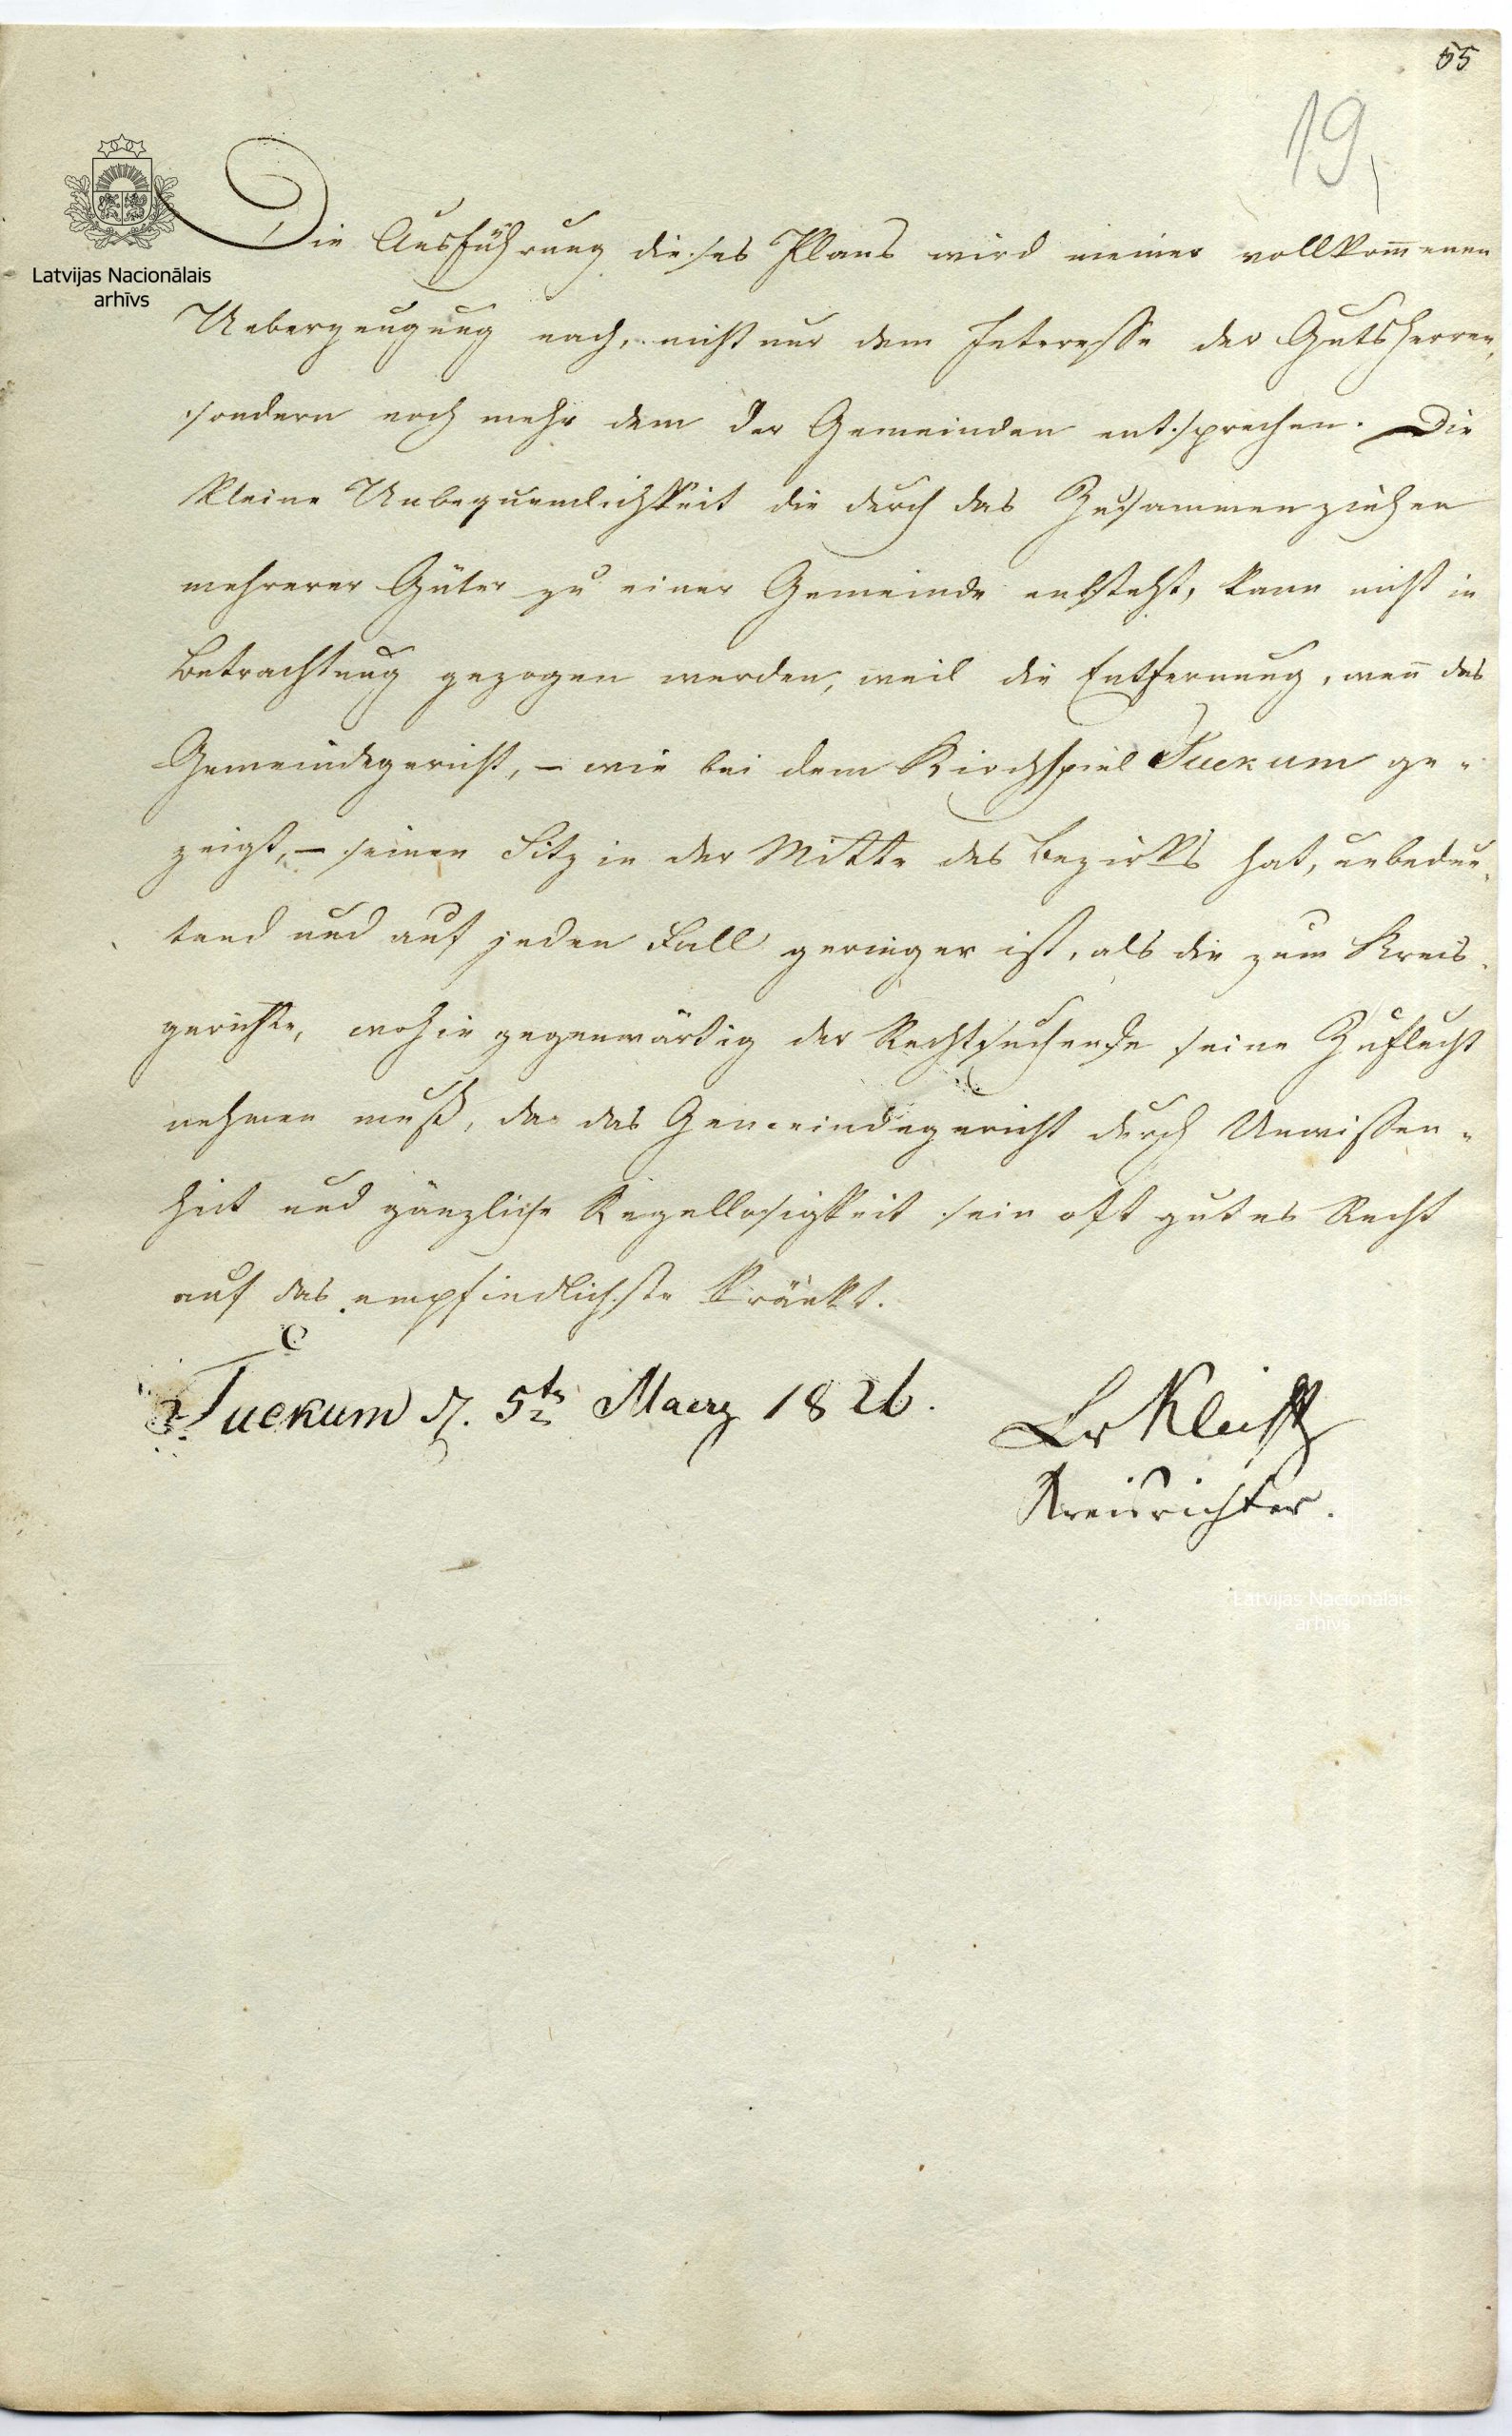 55
19,
Latvijas Nacionālais
arhīvs
Die Ausführung dieses Plans wird meiner vollkom̅enen
Ueberzeugung nach, nicht nur dem Interesse der Gutsherren,
sondern noch mehr dem der Gemeinden entsprechen. Die
kleine Unbequemlichkeit die durch das Zusammenziehen
mehrerer Güter zu einer Gemeinde entsteht, kann nicht in
Betrachtung gezogen werden, weil die Entfernung, wen̅ das
Gemeindegericht, – wie bei dem Kirchspiel Tuckum ge-
zeigt, – seinen Sitz in der Mitte des Bezirks hat, unbedeu-
tend und auf jeden Fall geringer ist, als die zum Kreis-
gerichte, wohin gegenwärtig der Rechtsuchende seine Zuflucht
nehmen muß, da das Gemeindegericht durch Unwissen-
heit und gänzliche Regellosigkeit sein oft gutes Recht
auf das empfindlichste kränkt.
Tuckum d. 5ts Maerz 1826.
Kleist
Kreisrichter.
Latvijas Nacionālais
arhīvs